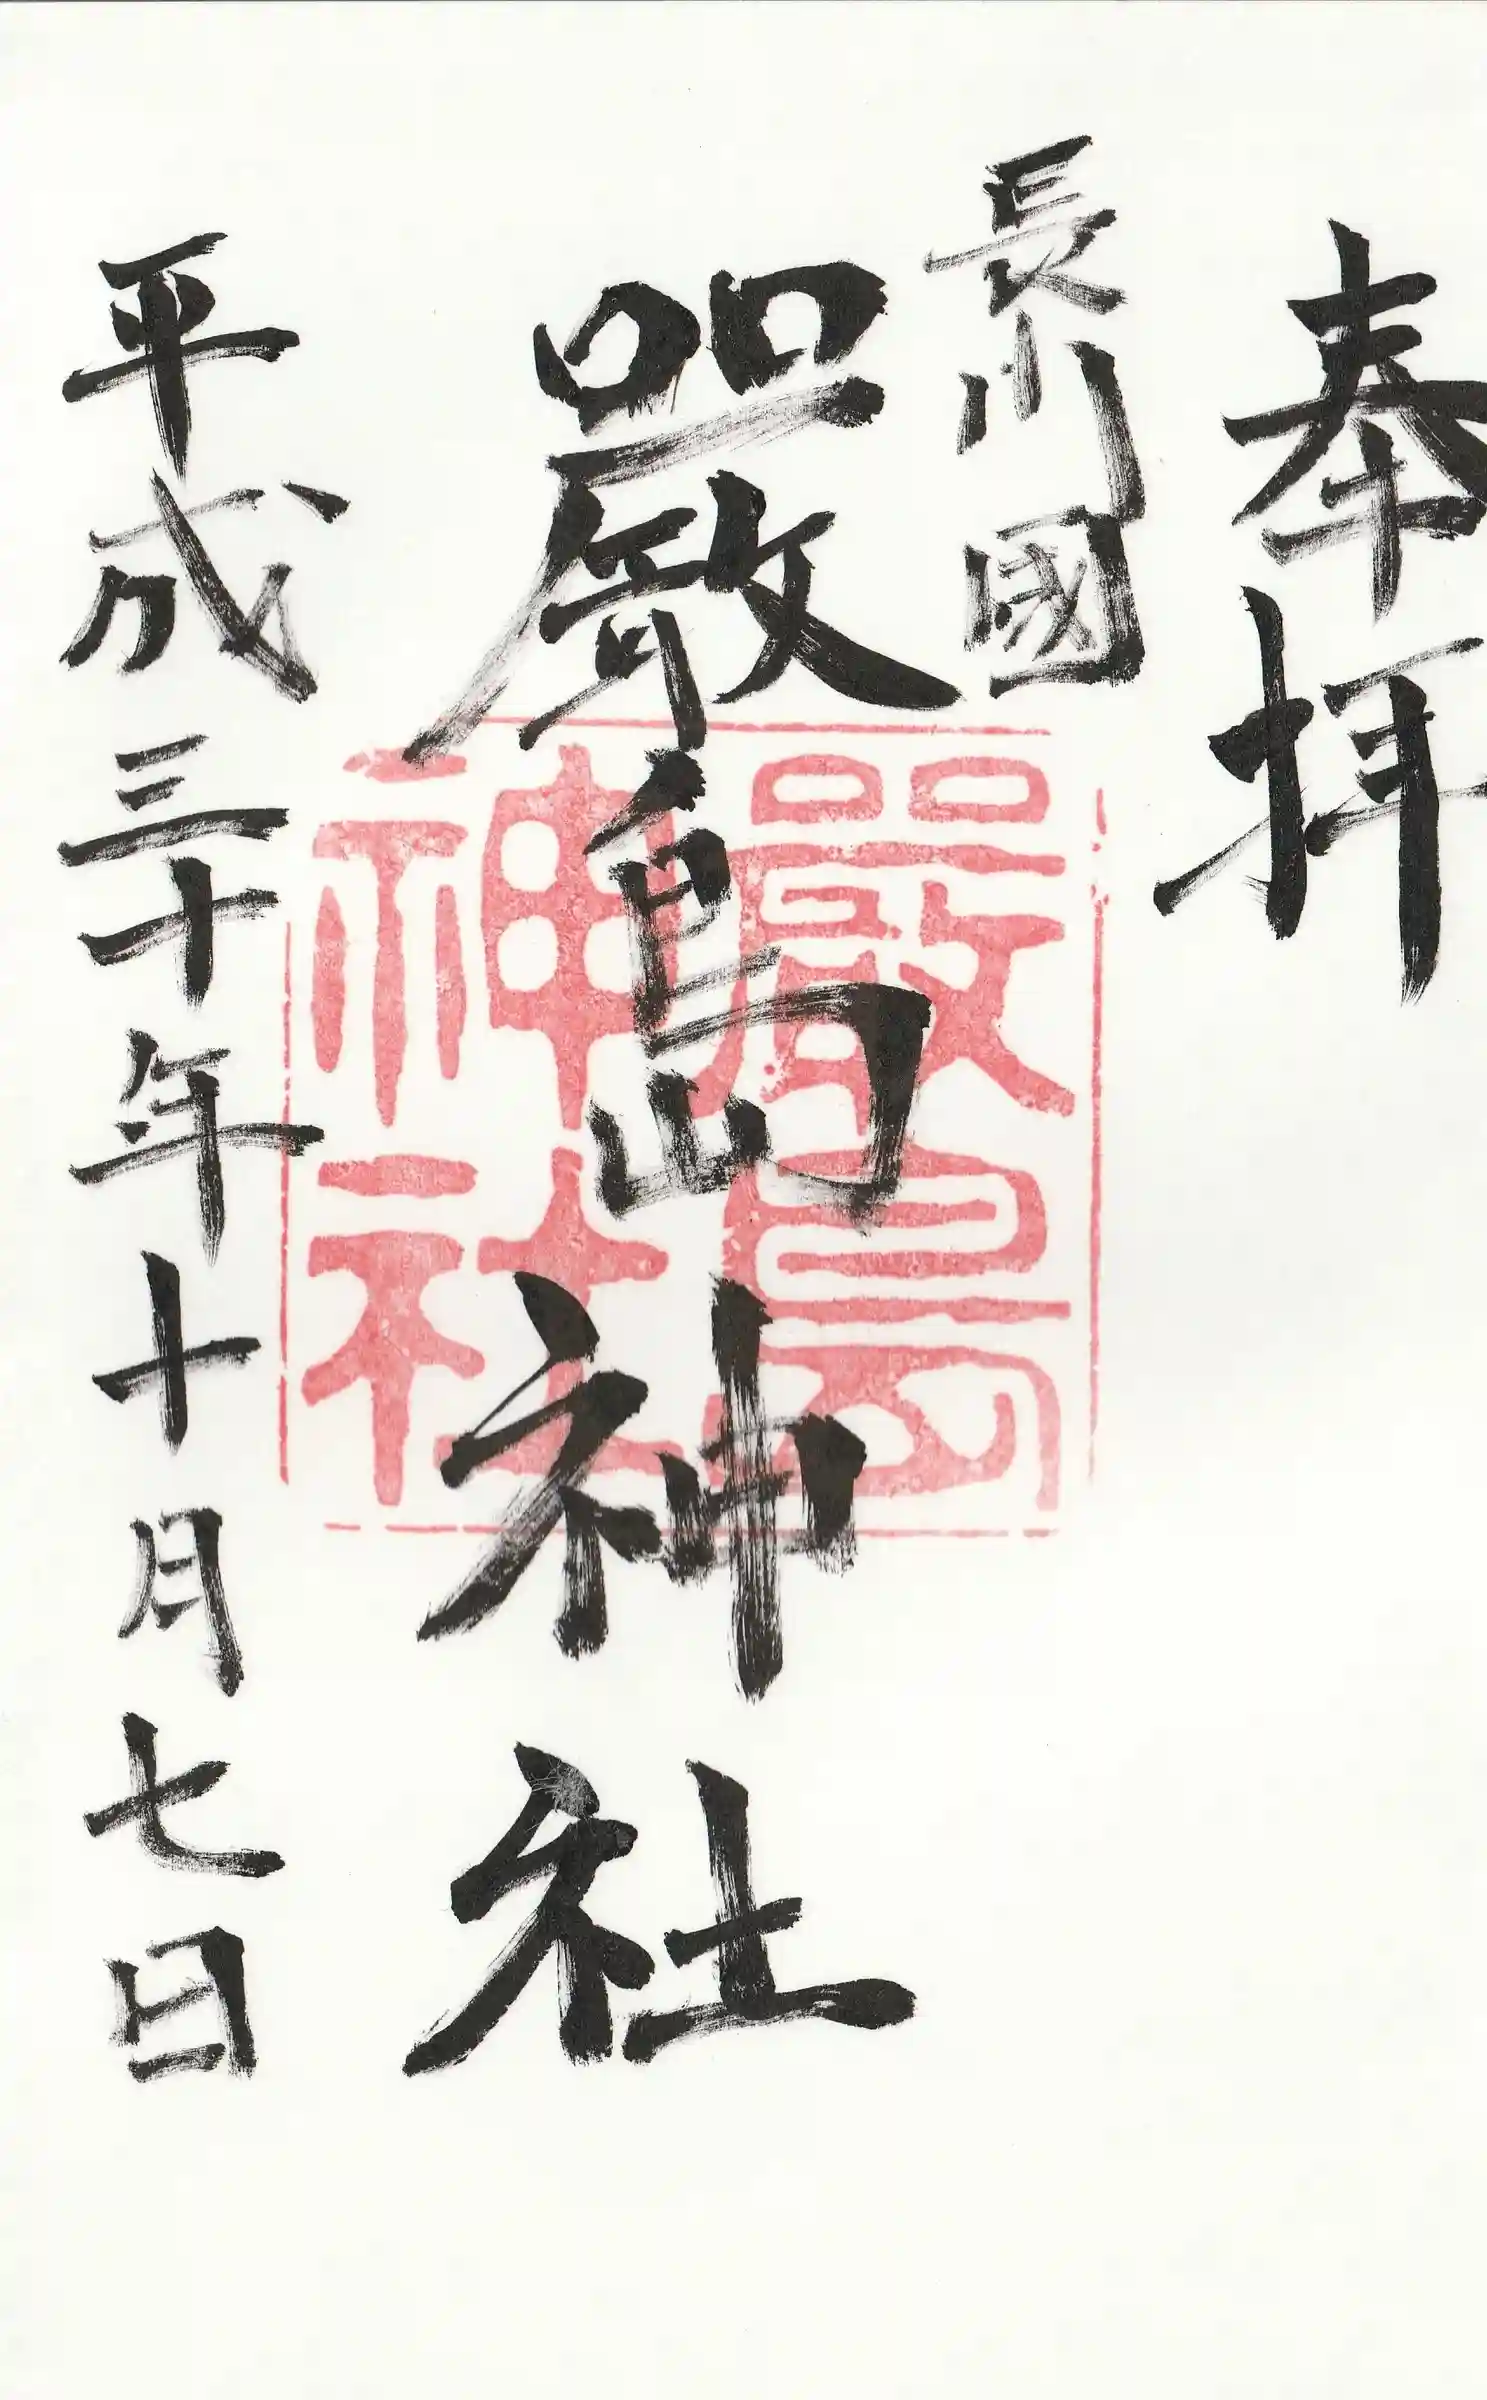 奉拝
長門國
嚴島神社
平成三十年十月七日
嚴島
神社